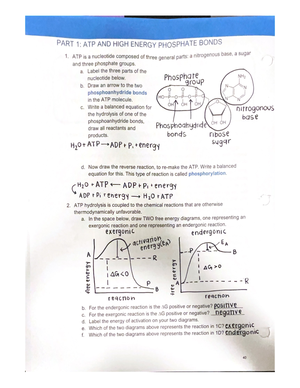 PART 1: ATP AND HIGH ENERGY PHOSPHATE BONDS
1. ATP is a nucleotide composed of three general parts: a nitrogenous base, a sugar
and three phosphate groups.
a. Label the three parts of the
nucleotide below.
b. Draw an arrow to the two
phosphoanhydride bonds
in the ATP molecule.
c. Write a balanced equation for
the hydrolysis of one of the
phosphoanhydride bonds,
draw all reactants and
products.
Phosphate
group
nitrogenous
base
Phosphoanhydride
bonds
ribose
sugar
H₂O + ATP → ADP + Pi + energy
d. Now draw the reverse reaction, to re-make the ATP. Write a balanced
equation for this. This type of reaction is called phosphorylation.
H₂O + ATP ← ADP + Pi + energy
ADP + Pi + energy → H₂O + ATP
2. ATP hydrolysis is coupled to the chemical reactions that are otherwise
thermodynamically unfavorable.
a. In the space below, draw TWO free energy diagrams, one representing an
exergonic reaction and one representing an endergonic reaction.
exergonic
endergonic
activation
energy (EA)
EA
A
R
P
B
ΔG<0
P
B
ΔG>0
A
R
free energy
free energy
reaction
reaction
b. For the endergonic reaction is the ΔG positive or negative? positive
c. For the exergonic reaction is the ΔG positive or negative? negative
d. Label the energy of activation on your two diagrams.
e. Which of the two diagrams above represents the reaction in 1C? exergonic
f. Which of the two diagrams above represents the reaction in 1D? endergonic